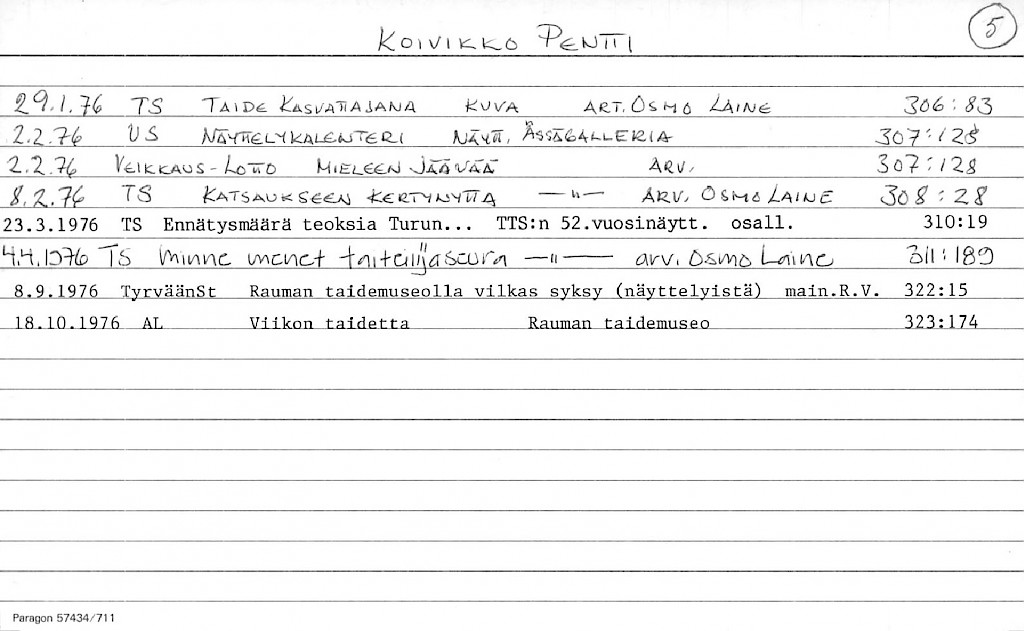 KOIVIKKO PENTTI 5
29.1.76 TS TAIDE KASVATTAJANA KUVA ART. OSMO LAINE 306:83
2.2.76 US NÄYTTELYKALENTERI NÄYTT. ÄSSÄGALLERIA 307:128
2.2.76 VEIKKAUS-LOTTO MIELEEN JÄÄVÄÄ ARV. 307:128
8.2.76 TS KATSAUKSEEN KERTYNYTTÄ —"— ARV. OSMO LAINE 308:28
23.3.1976 TS Ennätysmäärä teoksia Turun... TTS:n 52.vuosinäytt. osall. 310:19
4.4.1976 TS Minne menet taiteilijaseura —"— arv. Osmo Laine 311:189
8.9.1976 TyrväänSt Rauman taidemuseolla vilkas syksy (näyttelyistä) main.R.V. 322:15
18.10.1976 AL Viikon taidetta Rauman taidemuseo 323:174
Paragon 57434/711